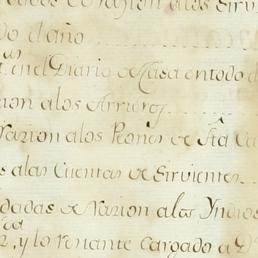 de Razion a los Sirvi
do d año
en el Diario de Casa en todo d
cion a los Arrieros
Razion a los Peones de Sta Ca
e a las Cuentas de Sirvientes
dadas de Razion a los Yndios
y lo restante cargado a D